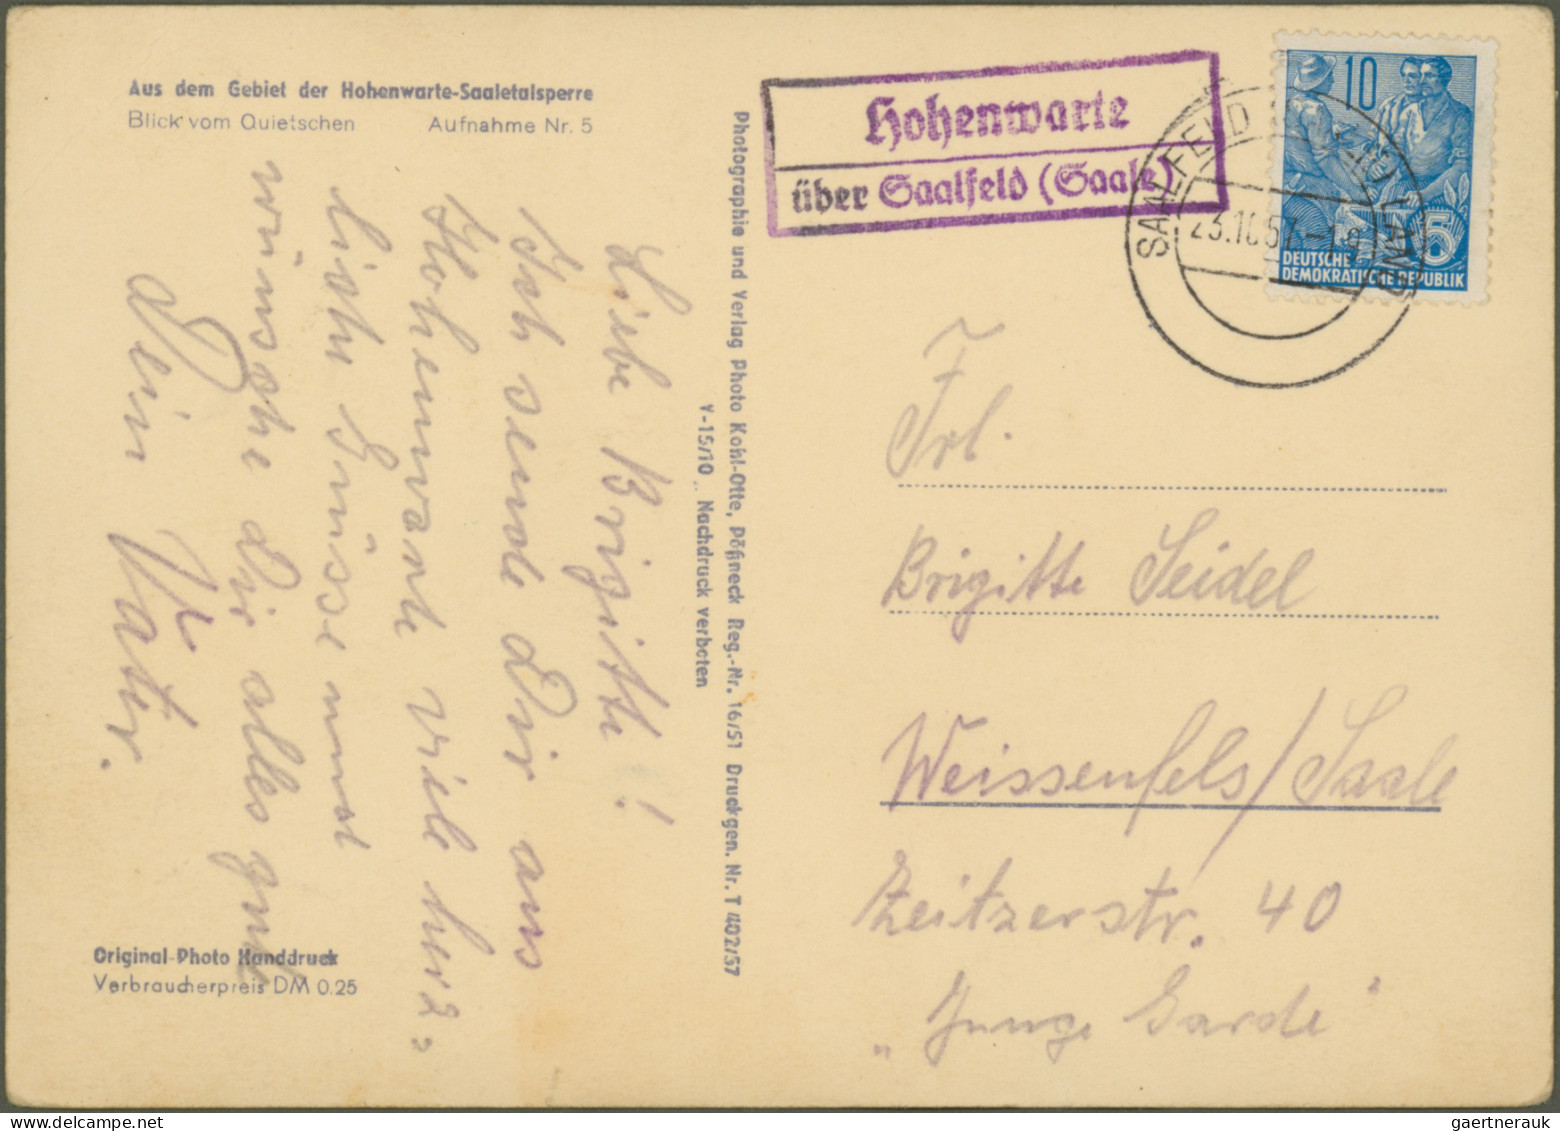 Aus dem Gebiet der Hohenwarte-Saaletalsperre
Blick vom Quietschen Aufnahme Nr. 5
Liebe Brigitte!
Ich sende Dir aus
Hohenwarte viele herz-
liche Grüsse und
wünsche Dir alles gute
Dein Vater.
Original-Photo Handdruck
Verbraucherpreis DM 0.25
Photographie und Verlag Photo Kohl-Otte, Pößneck Reg.-Nr. 16/51 Druckgen. Nr. T 402/57
V-15/10 Nachdruck verboten
Hohenwarte
über Saalfeld (Saale)
SAALFELD LAND
23.10.57
10
5
DEUTSCHE
DEMOKRATISCHE REPUBLIK
Frl.
Brigitte Seidel
Weissenfels/Saale
Zeitzerstr. 40
„Junge Garde"
gaertnerauk